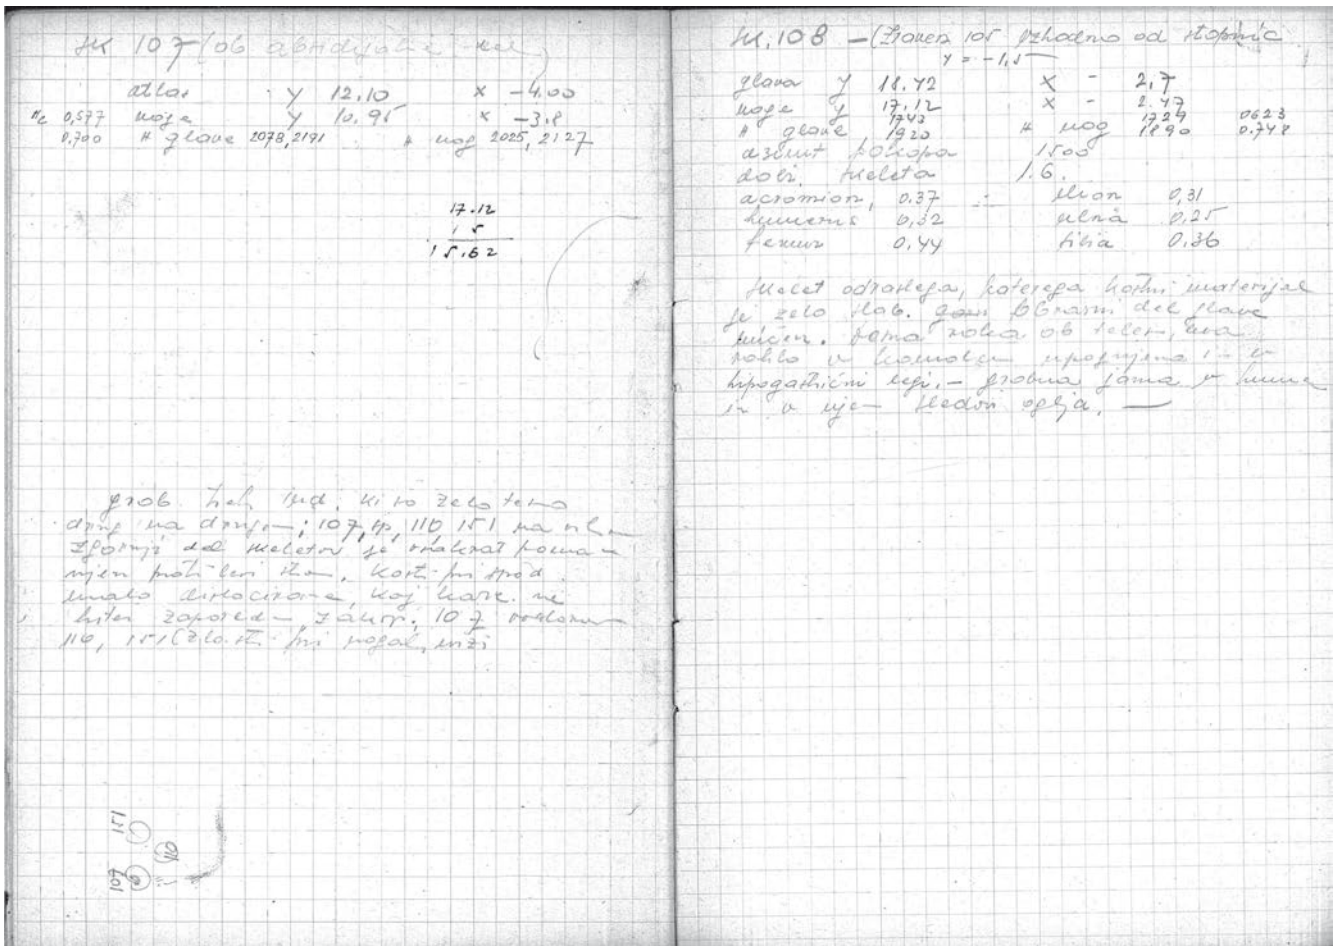 SK 107 (ob absidijalne
atlas y 12.10 x -4.00
0,577 noge y 10.95 x -3.8
0,700 # glave 2078,2191 # nog 2025,2127
17.12
1 5
15.62
grob treh ind. ki so zelo tesno
drug na drugem; 107, sp, 110, 151 na
zgornji del skeletov je
proti levi Kosti pri spod.
malo dislocirane, kaj kaže na
hiter 107
110, 151 (zlasti pri nogah, nizi
151
110
107
SK. 108 - (Zraven 105 vzhodno od stopnic
y = -1,5
glava y 18.72 x - 2,7
noge y 17.12 x - 2.47
1743 1729 0623
# glave 1920 # nog 1890 0.748
azimut pokopa 1500
dolž. skeleta 1.6.
acromion, 0.37 ilion 0,31
humerus 0,32 ulna 0.25
femur 0,44 tibia 0.36
Skelet odraslega, katerega kostni material
je zelo slab. Obrazni del glave
uničen. roka ob telesu, leva
rahlo v komolcu upognjena in v
hipogastrični legi. - grobna jama v
in v njej sledovi oglja. —